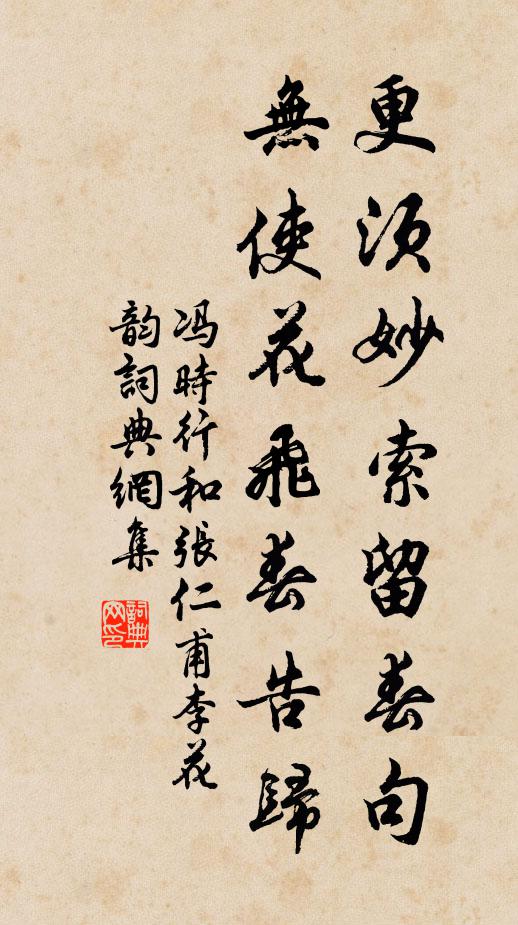 更須妙索留春句
無使花飛春告歸
冯時行和張仁甫李花
韵詞典網集
詞典网印